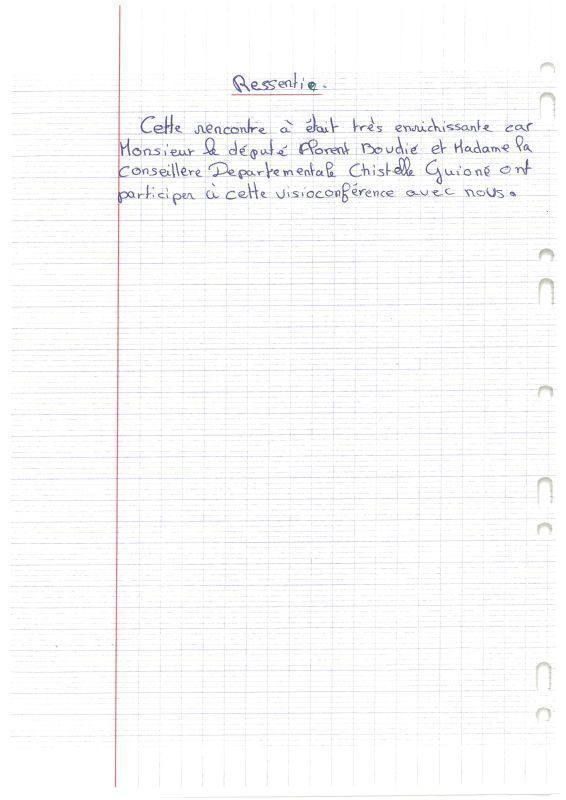 Ressentie.
Cette rencontre à était très enrichissante car
Monsieur le député Florent Boudié et Madame la
Conseillère Departementale Chistelle Guioné ont
participer à cette visioconférence avec nous.